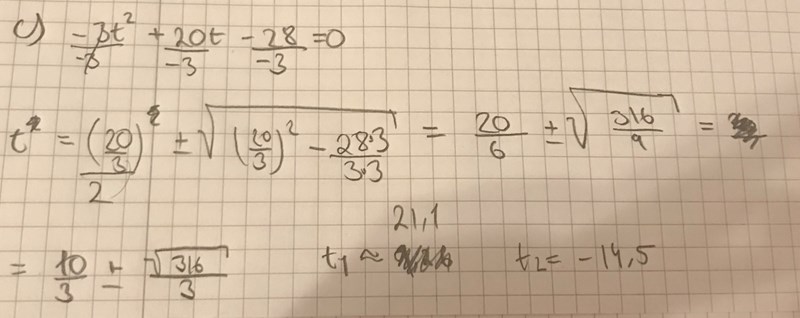 c) -3t²/-3 + 20t/-3 - 28/-3 = 0
t = (20/3)/2 ± √((20/3)² - 28·3/3·3) = 20/6 ± √(316/9) =
21,1
= 10/3 ± √316/3 t₁ ≈ t₂ = -14,5